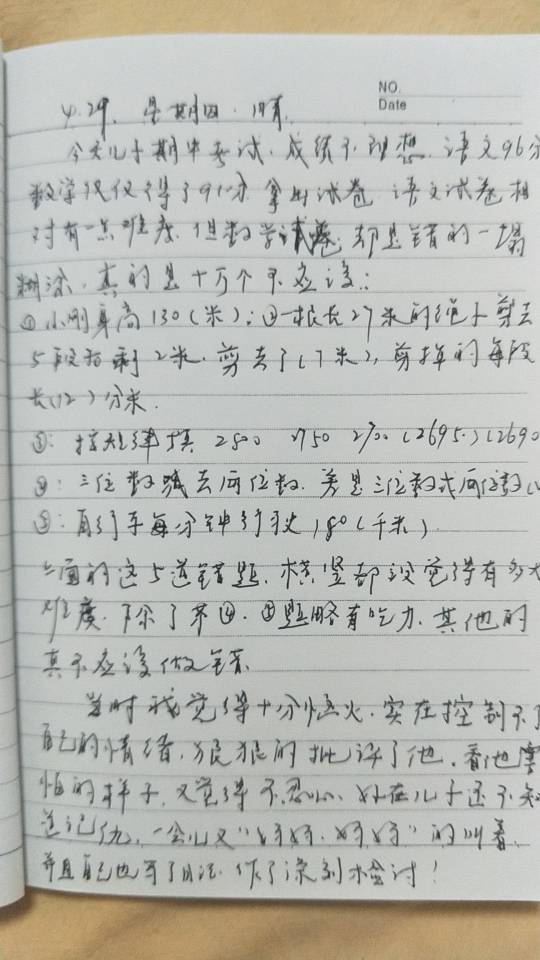 NO.
Date
4.29. 星期四·晴.
今天儿子期中考试.成绩不理想.语文96分
数学仅仅得了91分.拿出试卷.语文试卷相
对有一点难度.但数学试卷却是错的一塌
糊涂.真的是十万个不应该:
①小刚身高130(米);②一根长27米的绳子剪去
5段后剩2米.剪去了(7米),剪掉的每段
长(12)分米.
③:按规律填 2800 2750 2700 (2695.)(2690
④:三位数减去两位数.差是三位数或两位数(
⑤:自行车每分钟行驶180(千米)
上面的这5道错题.横竖都没觉得有多大
难度.除了第④.②题略有吃力.其他的
真不应该做错.
当时我觉得十分恼火.实在控制不了
自己的情绪.狠狠的批评了他.看他害
怕的样子.又觉得不忍心.好在儿子还不知
道记仇.一会儿又"妈妈.妈妈"的叫着.
并且自己也写了日记.作了深刻检讨!